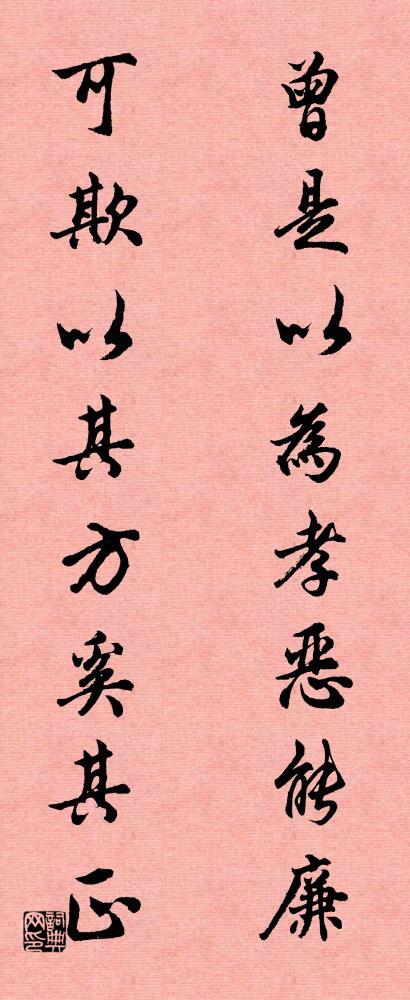 曾是以為孝惡能廉
可欺以其方奚其正
詞典網印